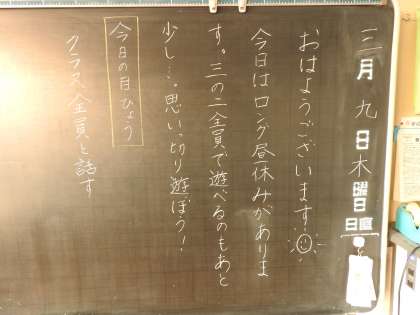 三月九日木曜日
日直
おはようございます!
今日はロング昼休みがありま
す。三の二全員で遊べるのもあと
少し…。思いっ切り遊ぼう!
今日の目ひょう
クラス全員と話す